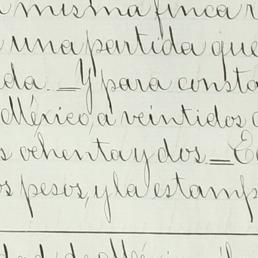 misma finca r
una partida que
da. _ Y para consta
México, a veintidos
s ochenta y dos _ E
os pesos, y la estamp